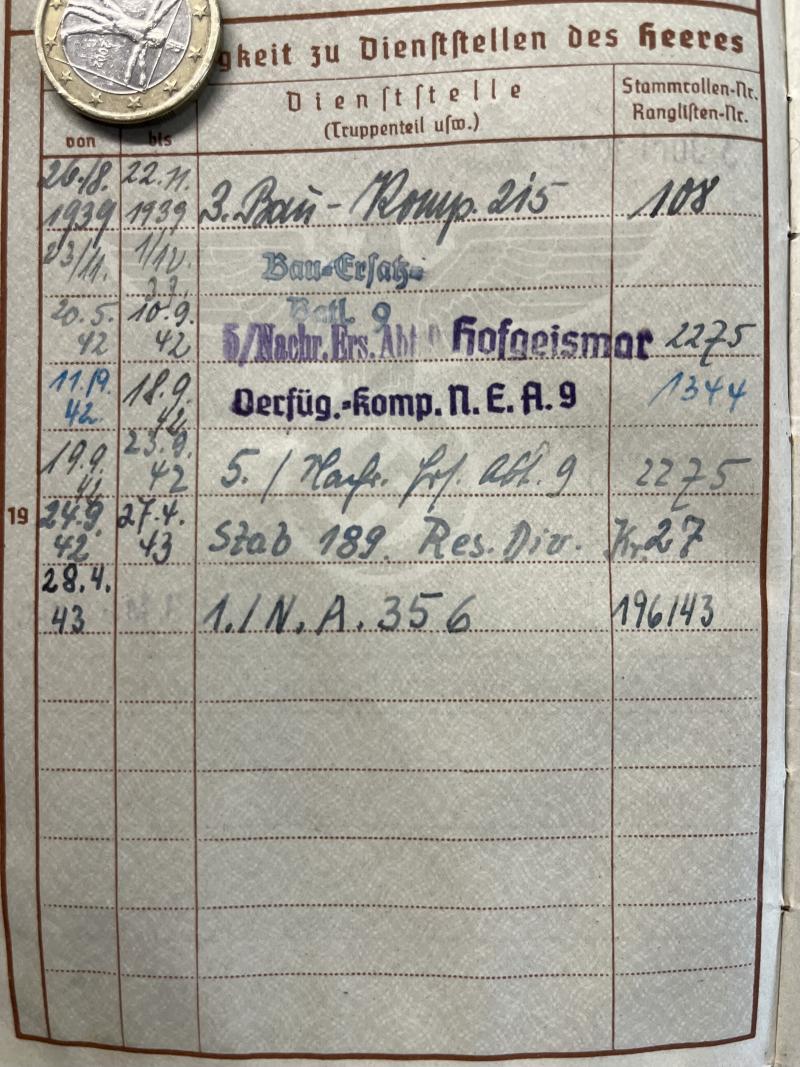 2002
gkeit zu Dienststellen des Heeres
von bis
Dienststelle
(Truppenteil usw.)
Stammrollen-Nr.
Ranglisten-Nr.
26./8. 22.11.
1939 1939 3. Bau-Komp. 215 108
23/11. 1/12. Bau-Ersatz-
Batl. 9
20.5. 10.9.
42 42 5/Nachr. Ers. Abt Hofgeismar 2275
11.9. 18.9.
42. 42 Verfüg.-Komp. N. E. A. 9 1344
19.9. 23.9.
42 5. / Nachr. Ers. Abt. 9 2275
19
24.9. 27.4.
42 43 Stab 189. Res. Div. Kr. 27
28.4.
43 1./N. A. 356 196/43